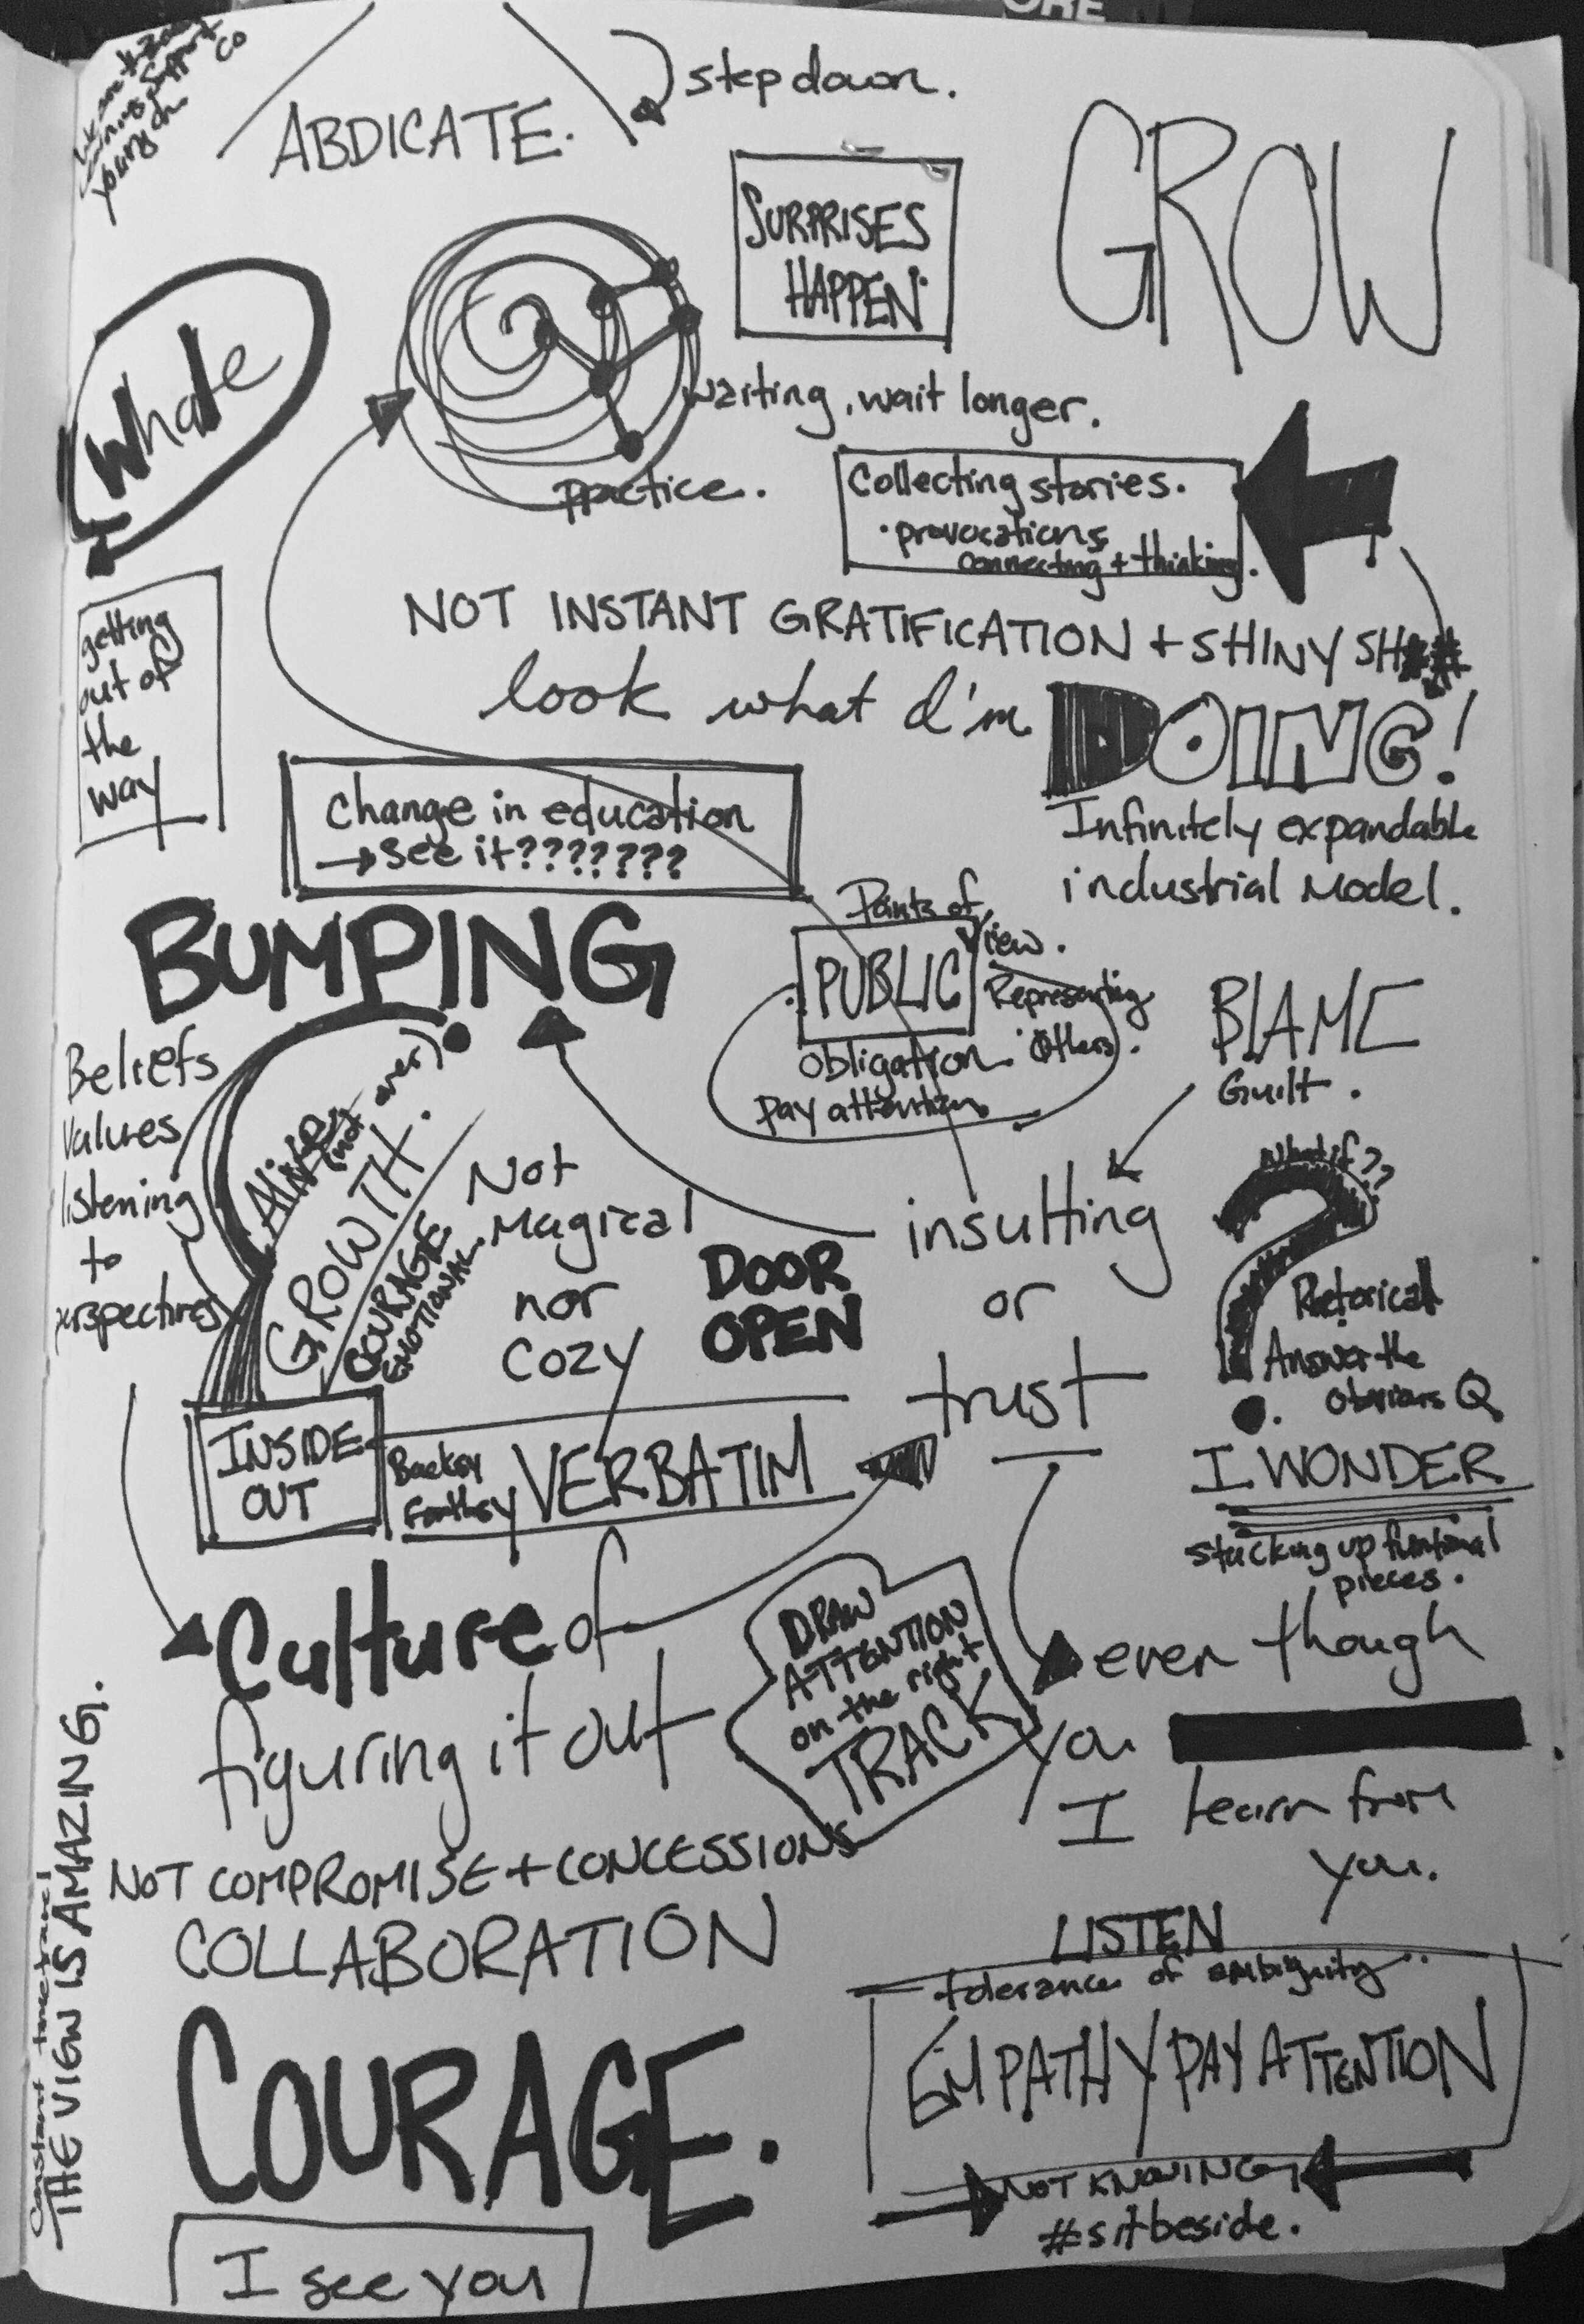 ORE
young ch
Support
co
ABDICATE.
step down.
GROW
SURPRISES
HAPPEN.
Whole
waiting, wait longer.
practice.
Collecting stories.
• provocations
connecting + thinking.
getting
out of
the
way
NOT INSTANT GRATIFICATION + SHINY SH##
look what I'm DOING!
Infinitely expandable
industrial model.
Change in education
→ see it???????
Points of
View.
PUBLIC
Representing
"Others".
obligation
pay attention
BUMPING
BLAME
Guilt.
Beliefs
Values
listening
to
perspectives
(not over)
GROWTH.
COURAGE
EMOTIONAL.
Not
Magical
nor
cozy
DOOR
OPEN
insulting
or
trust
What if??
?
Rhetorical
Answer the
obvious Q
I WONDER
stacking up
pieces.
INSIDE
OUT
VERBATIM
Culture of
figuring it out
DRAW
ATTENTION
on the right
TRACK
even though
you
I learn from
you.
NOT COMPROMISE + CONCESSIONS
COLLABORATION
COURAGE.
I see you
THE VIEW IS AMAZING.
LISTEN
tolerance of ambiguity.
EMPATHY PAY ATTENTION
NOT KNOWING
#sitbeside.